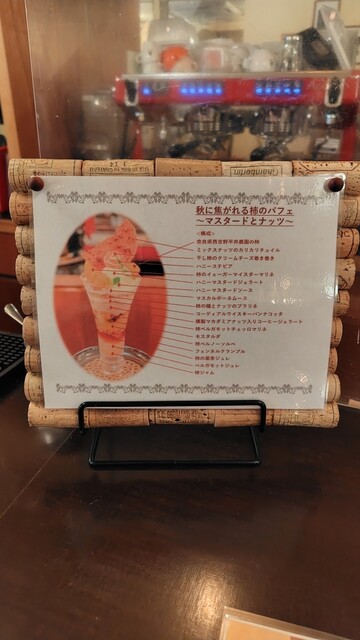 秋に焦がれる柿のパフェ
〜マスタードとナッツ〜
<構成>
奈良県西吉野平井農園の柿
ミックスナッツのカリカリチュイル
干し柿のクリームチーズ巻き巻き
ハニーステビア
柿のイェーガーマイスターマリネ
ハニーマスタードジェラート
ハニーマスタードソース
マスカルポーネムース
柿の種とナッツのプラリネ
コーディアルウイスキーパンナコッタ
燻製マカダミアナッツ入りコーヒージェラート
柿ベルガモットチェッロマリネ
モスタルダ
柿ペルノーソルベ
フェンネルクランブル
柿の葉茶ジュレ
ベルガモットジュレ
柿ジャム